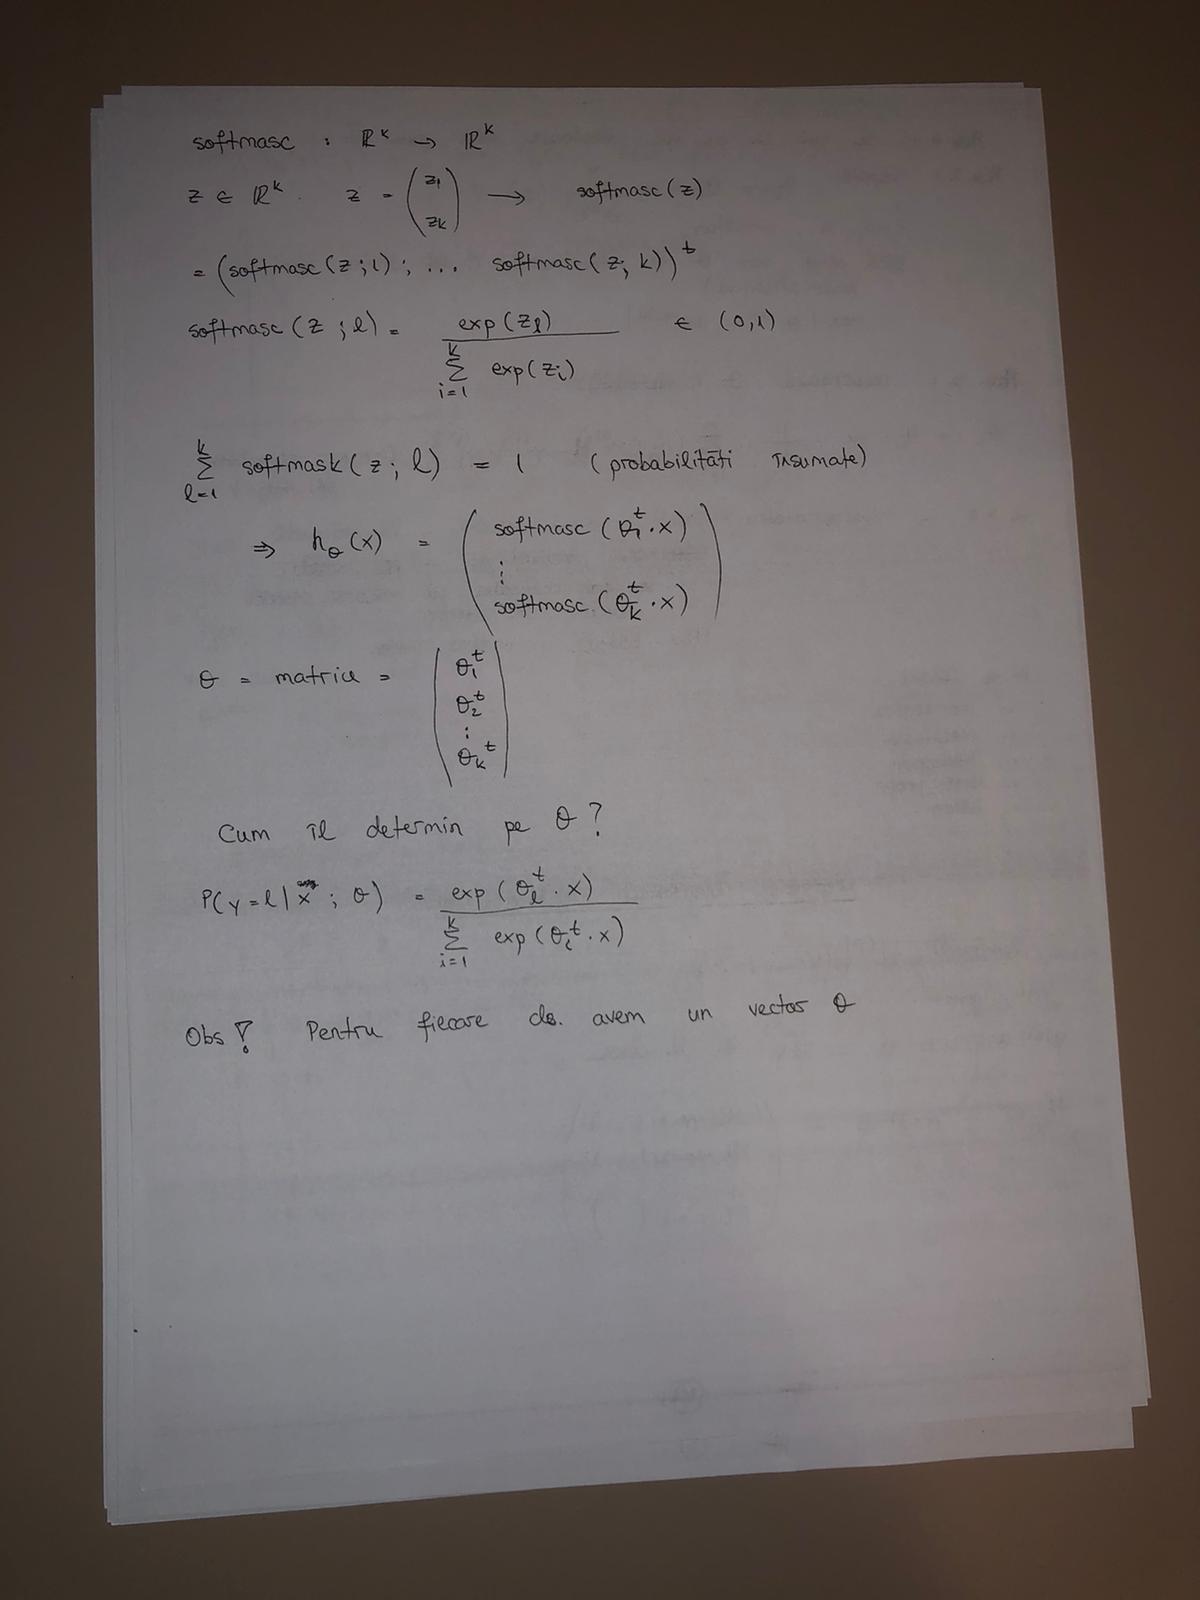 softmasc : ℝ^k → ℝ^k
z ∈ ℝ^k. z = (z1 zk) → softmasc(z)
= (softmasc(z;1); ... softmasc(z; k))^t
softmasc(z; l) = exp(zl) / Σ_{i=1}^{k} exp(zi) ∈ (0,1)
Σ_{l=1}^{k} softmask(z; l) = 1 (probabilităti însumate)
⇒ hθ(x) = (softmasc(θ1^t · x) ⋮ softmasc(θk^t · x))
θ = matrice = (θ1^t θ2^t ⋮ θk^t)
Cum îl determin pe θ?
P(y=l|x; θ) = exp(θl^t · x) / Σ_{i=1}^{k} exp(θi^t · x)
Obs! Pentru fiecare cls. avem un vector θ